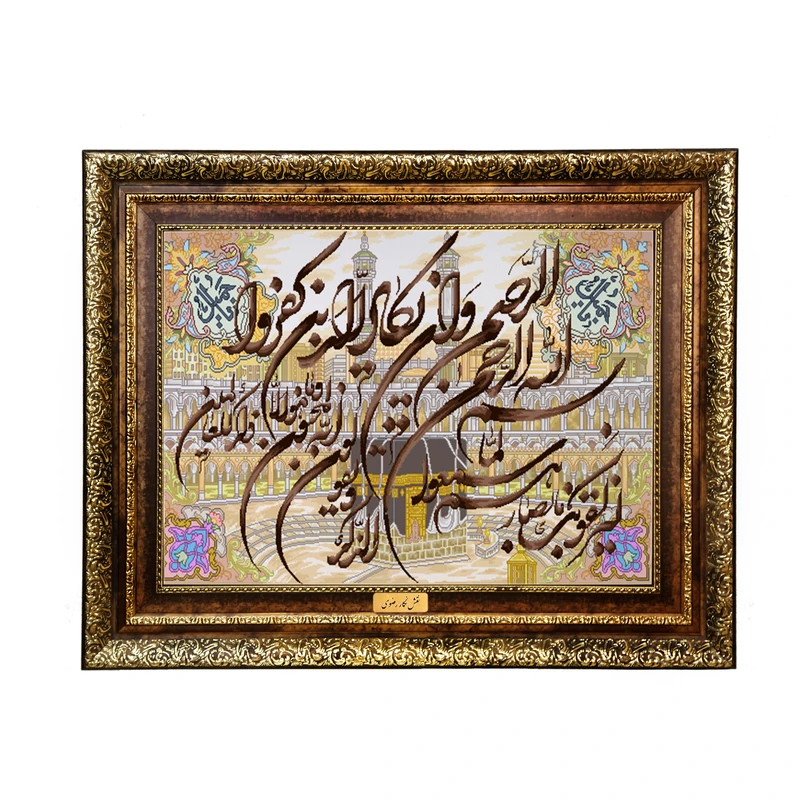 بسم الله الرحمن الرحیم
وان یکاد الذین کفروا
لیزلقونک بابصارهم لما سمعوا
الذکر ویقولون انه لمجنون
وما هو الا ذکر للعالمین
نقش نگار رضوی